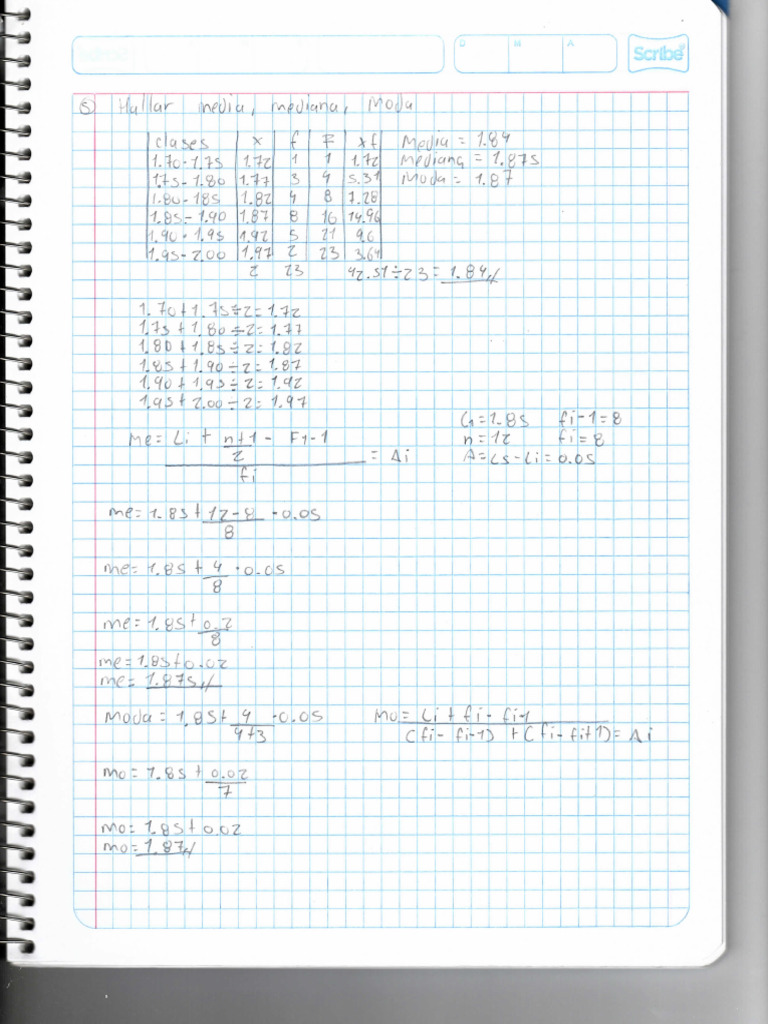 D M A Scribe
⑤ Hallar media, mediana, Moda
clases x f F xf Media = 1.84
1.70-1.75 1.72 1 1 1.72 Mediana = 1.875
1.75-1.80 1.77 3 4 5.31 Moda = 1.87
1.80-185 1.82 4 8 7.28
1.85-1.90 1.87 8 16 14.96
1.90-1.95 1.92 5 21 9.6
1.95-2.00 1.97 2 23 3.64
2 23 42.51÷23=1.84
1.70+1.75÷2=1.72
1.75+1.80÷2=1.77
1.80+1.85÷2=1.82
1.85+1.90÷2=1.87
1.90+1.95÷2=1.92
1.95+2.00÷2=1.97
Li=1.85 fi-1=8
n=12 fi=8
A=Ls-Li=0.05
Me= Li + n+1 - F1-1
2 = Ai
fi
me=1.85+12-8 ·0.05
8
me=1.85+4 ·0.05
8
me=1.85+0.2
8
me=1.85+0.02
me=1.875
Moda=1.85+4 ·0.05 Mo=Li+fi-fi-1
4+3 (fi-fi-1)+(fi-fi+1)=Ai
mo=1.85+0.02
7
mo=1.85+0.02
mo=1.87